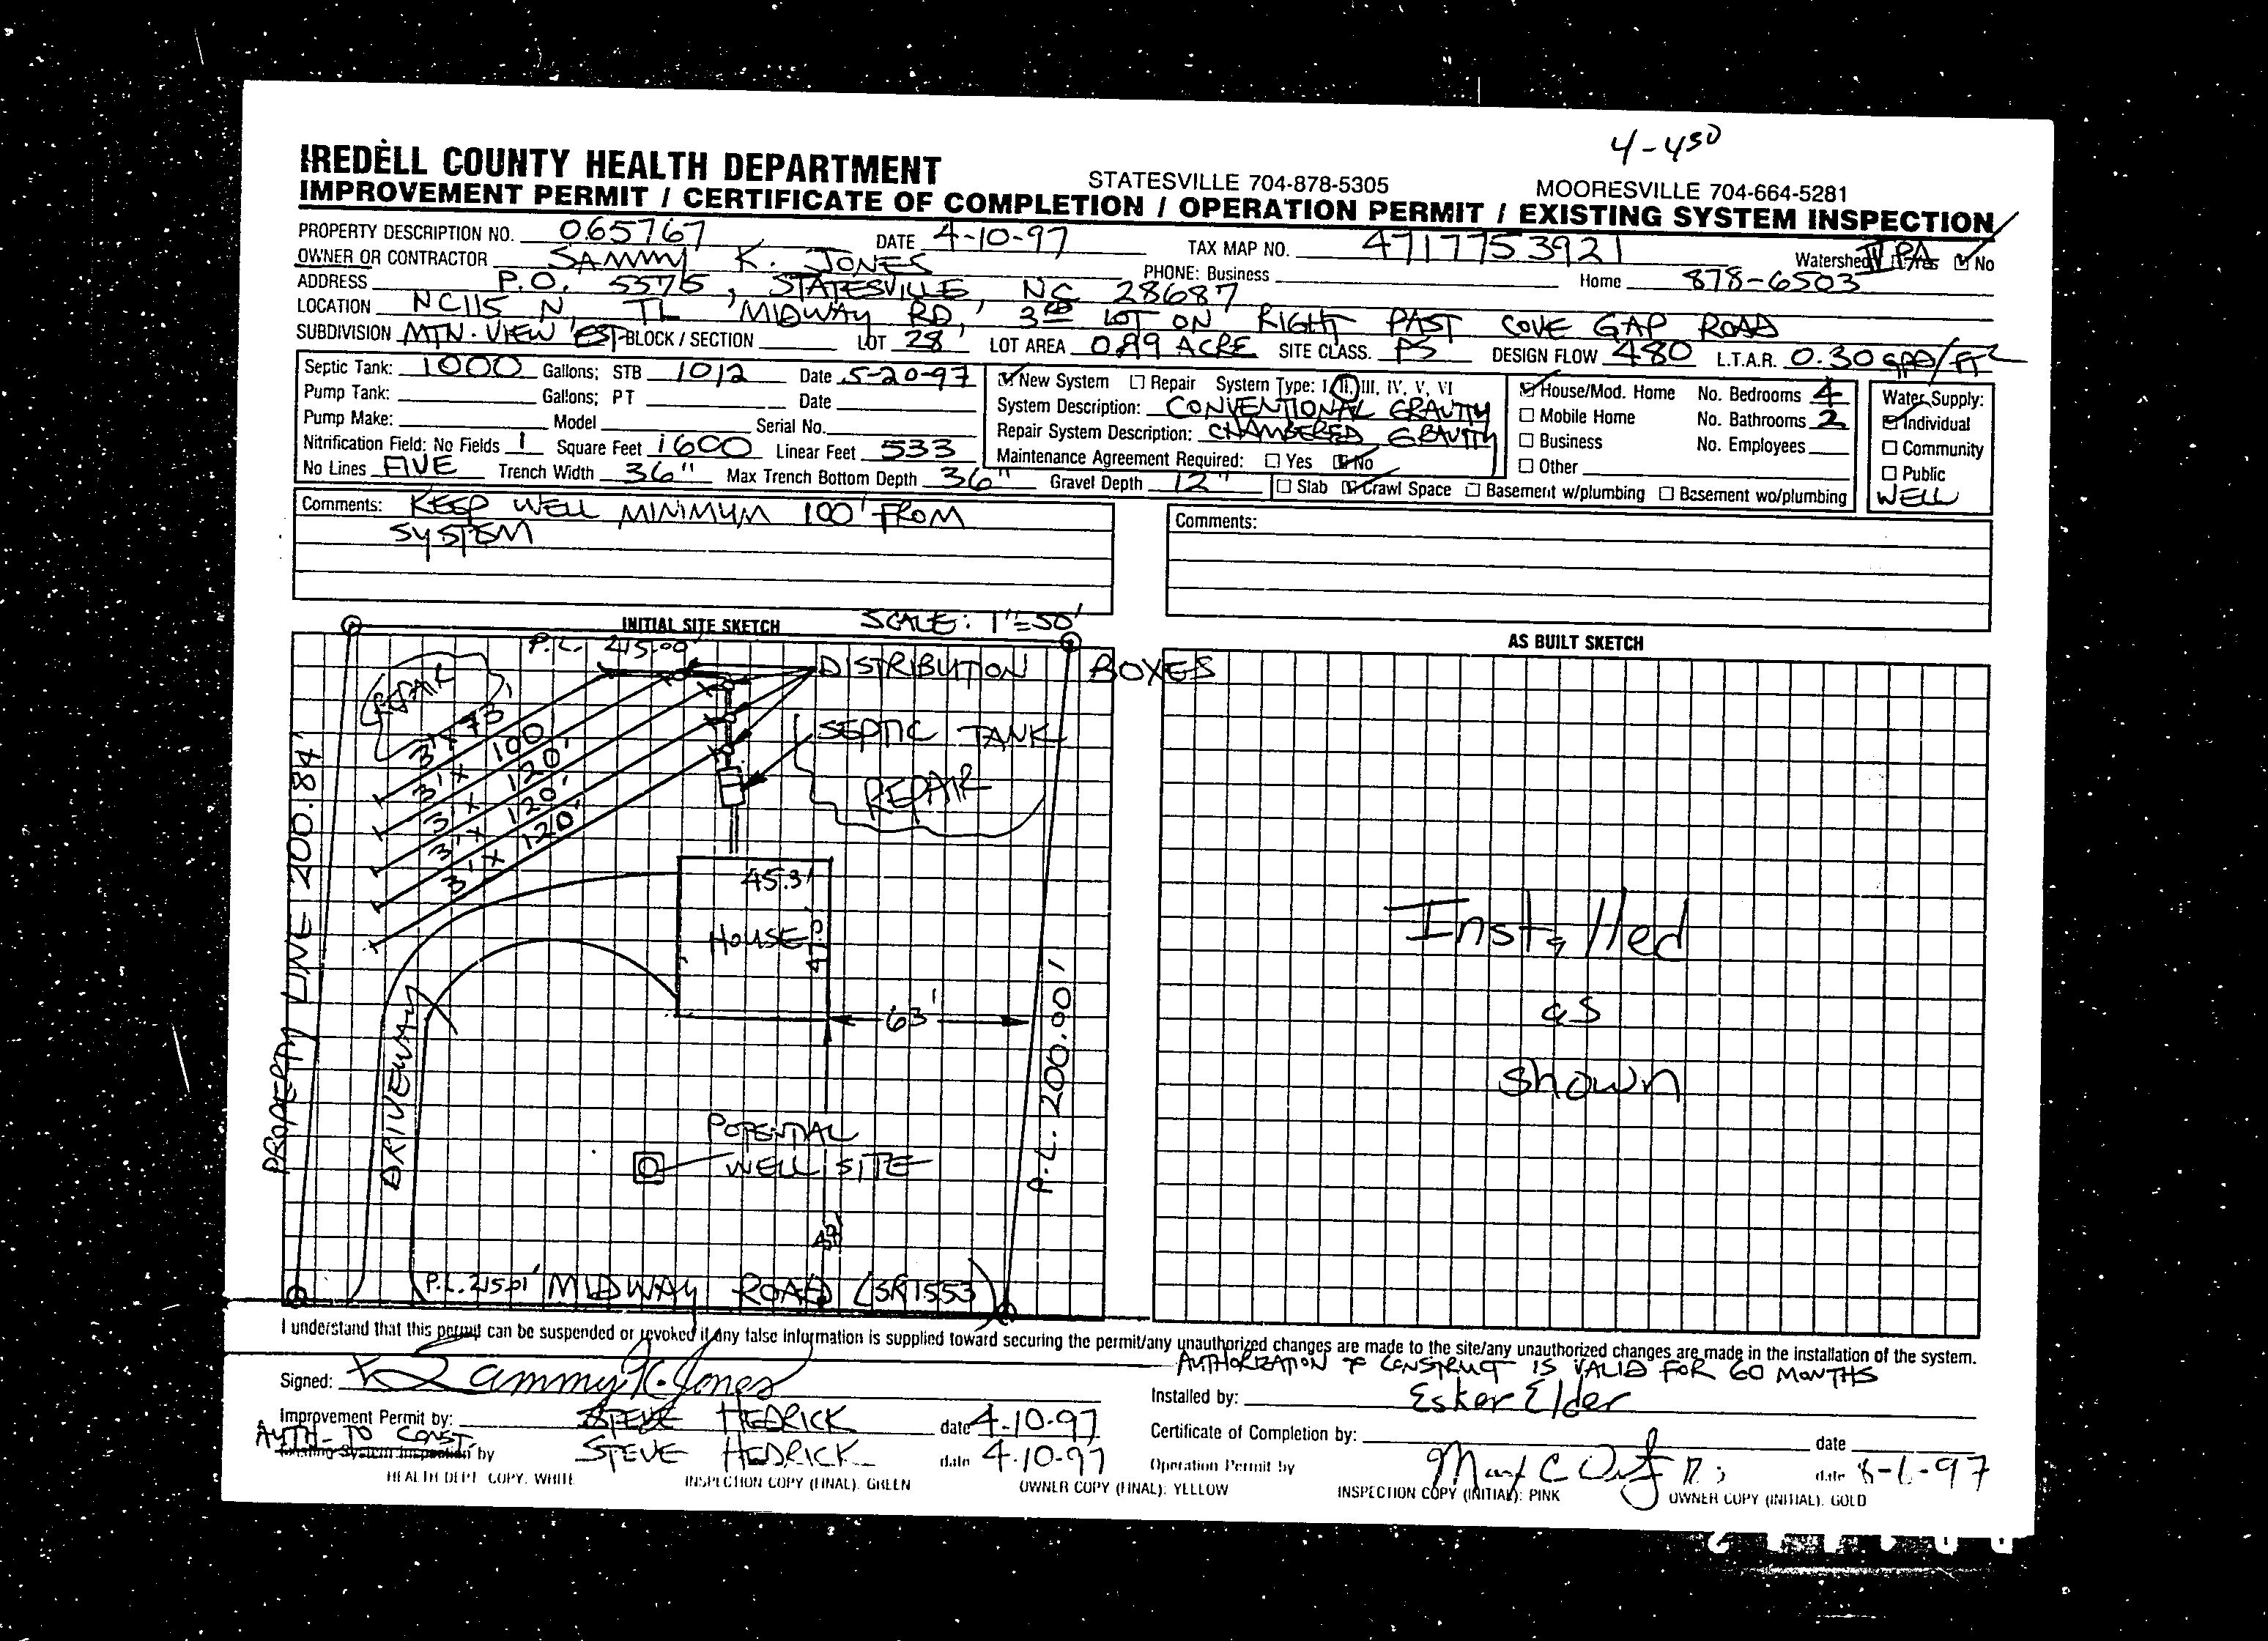 4-450
IREDELL COUNTY HEALTH DEPARTMENT STATESVILLE 704-878-5305 MOORESVILLE 704-664-5281
IMPROVEMENT PERMIT / CERTIFICATE OF COMPLETION / OPERATION PERMIT / EXISTING SYSTEM INSPECTION
PROPERTY DESCRIPTION NO. 065767 DATE 4-10-97 TAX MAP NO. 4717753921 Watershed IV PA Yes No
OWNER OR CONTRACTOR SAMMY K. JONES PHONE: Business Home 878-6503
ADDRESS P.O. 5575, STATESVILLE, NC 28687
LOCATION NC115 N, TL MIDWAY RD, 3RD LOT ON RIGHT PAST COVE GAP ROAD
SUBDIVISION MTN. VIEW EST BLOCK / SECTION LOT 28 LOT AREA 0.99 ACRE SITE CLASS. PS DESIGN FLOW 480 L.T.A.R. 0.30 GPD/FT2
Septic Tank: 1000 Gallons; STB 1012 Date 5-20-97
Pump Tank: Gallons; PT Date
Pump Make: Model Serial No.
Nitrification Field: No Fields 1 Square Feet 1600 Linear Feet 533
No Lines FIVE Trench Width 36" Max Trench Bottom Depth 36" Gravel Depth 12"
New System Repair System Type: I, II, III, IV, V, VI
System Description: CONVENTIONAL GRAVITY
Repair System Description: CHAMBERED GRAVITY
Maintenance Agreement Required: Yes No
House/Mod. Home No. Bedrooms 4
Mobile Home No. Bathrooms 2
Business No. Employees
Other
Slab Crawl Space Basement w/plumbing Basement wo/plumbing
Water Supply:
Individual
Community
Public
WELL
Comments: KEEP WELL MINIMUM 100' FROM
SYSTEM
Comments:
INITIAL SITE SKETCH SCALE: 1"=50'
AS BUILT SKETCH
P.L. 215.00'
DISTRIBUTION BOXES
REPAIR
SEPTIC TANK
REPAIR
3' X 73'
3' X 100'
3' X 120'
3' X 120'
3' X 120'
PROPERTY LINE 200.84'
45.3'
HOUSE
47.5'
63'
P.L. 200.00'
DRIVEWAY
POTENTIAL
WELL SITE
P.L. 215.01' MIDWAY ROAD (SR1553)
Installed
as
shown
I understand that this permit can be suspended or revoked if any false information is supplied toward securing the permit/any unauthorized changes are made to the site/any unauthorized changes are made in the installation of the system.
AUTHORIZATION TO CONSTRUCT IS VALID FOR 60 MONTHS
Signed: Sammy K. Jones
Installed by: Esker Elder
Improvement Permit by: STEVE HEDRICK date 4-10-97
Certificate of Completion by: date
AUTH- TO CONST.
Existing System Inspection by STEVE HEDRICK date 4-10-97
Operation Permit by date
HEALTH DEPT COPY: WHITE INSPECTION COPY (FINAL): GREEN OWNER COPY (FINAL): YELLOW INSPECTION COPY (INITIAL): PINK OWNER COPY (INITIAL): GOLD